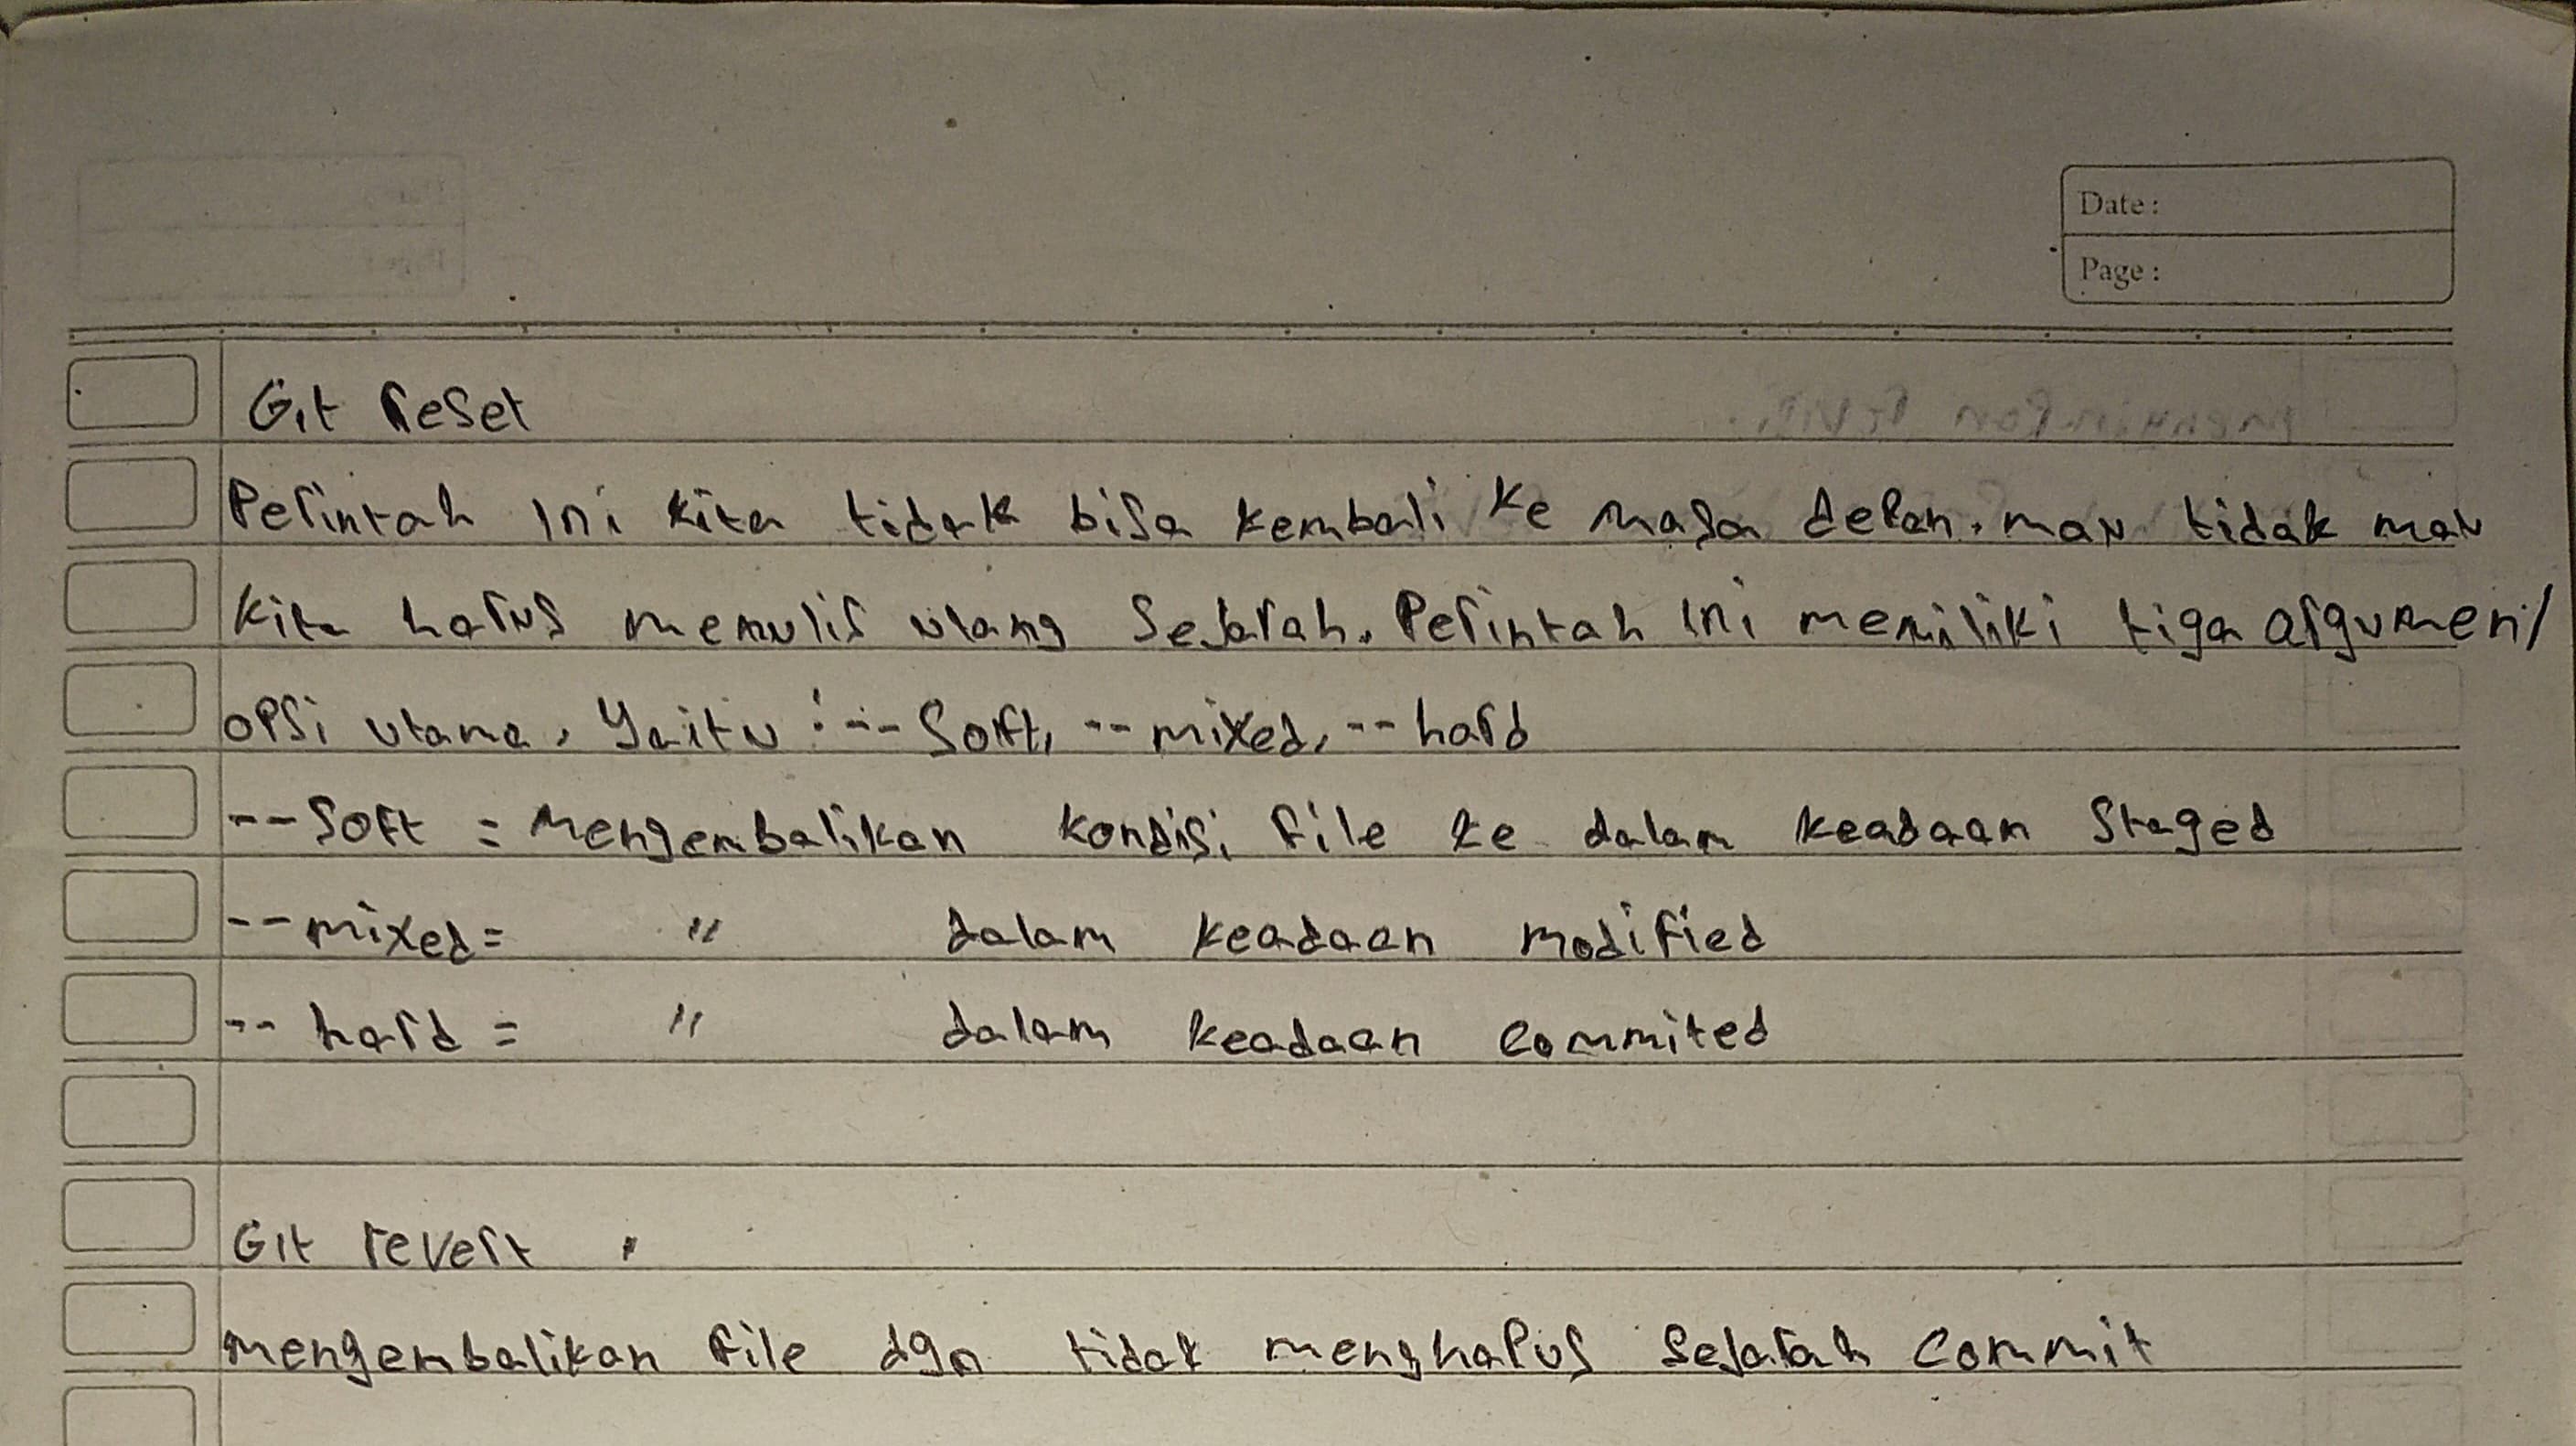 Date :
Page :
Git reset
Perintah ini kita tidak bisa kembali ke masa depan. mau tidak mau
kita harus menulis ulang sejarah. Perintah ini memiliki tiga argumen/
opsi utama, yaitu : --soft, --mixed, --hard
--soft = Mengembalikan kondisi file ke dalam keadaan staged
--mixed = " dalam keadaan modified
--hard = " dalam keadaan commited
Git revert
mengembalikan file dgn tidak menghapus sejarah commit